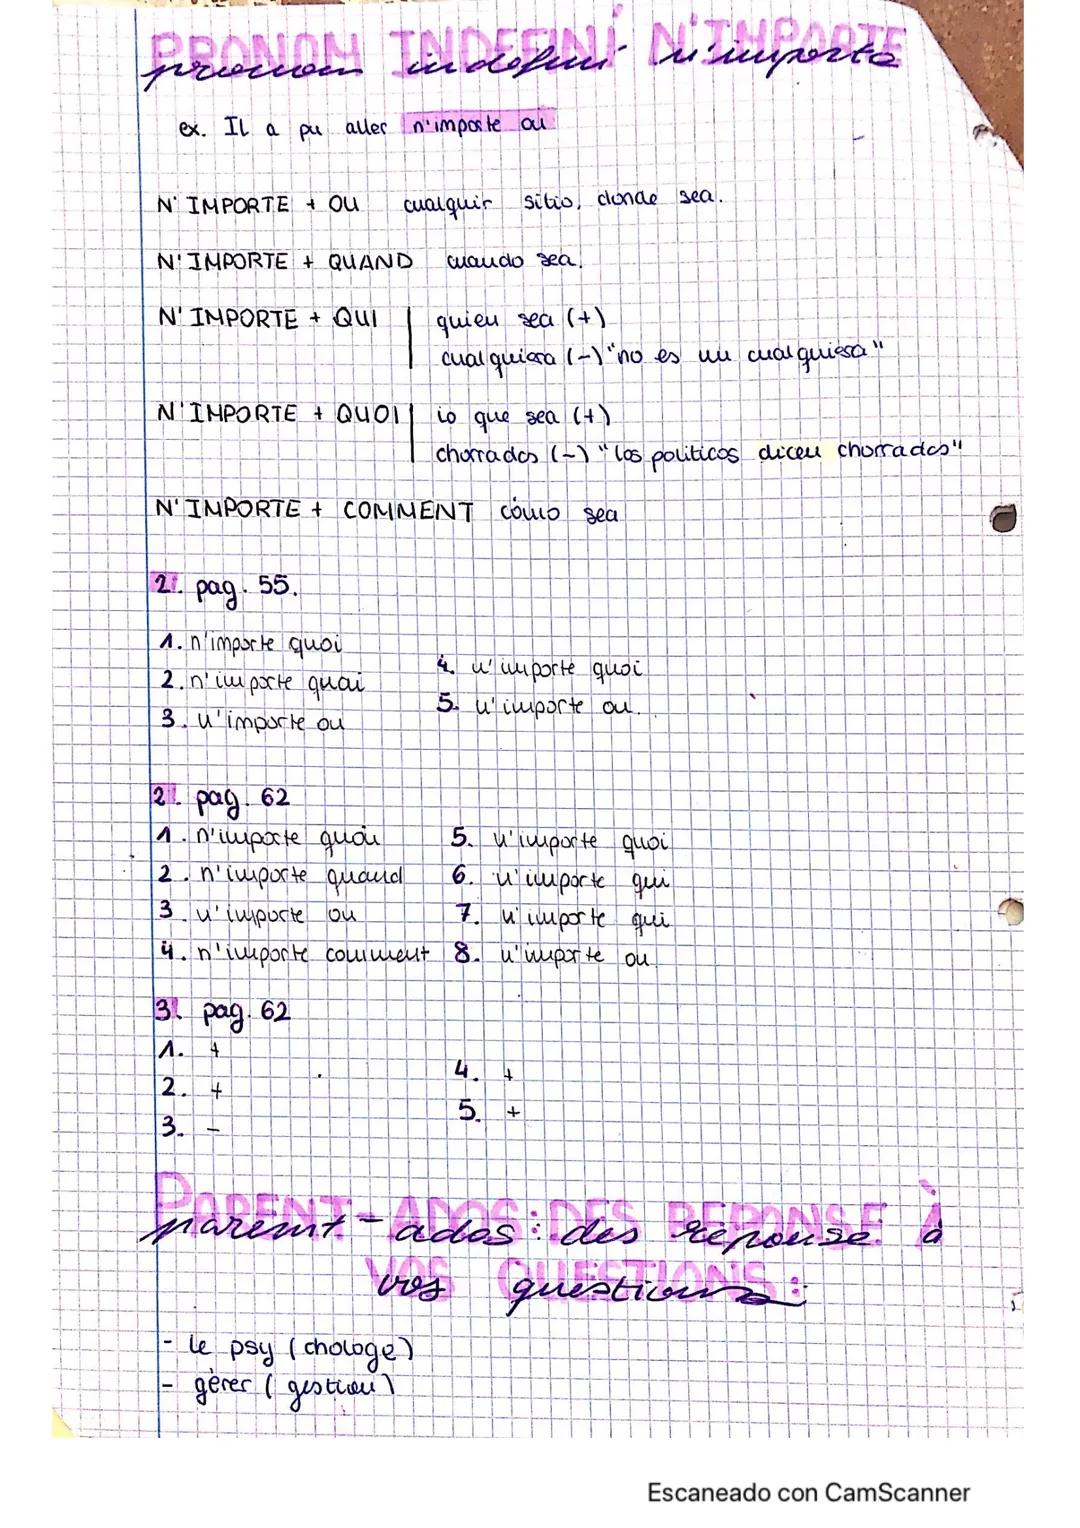 PRONOM INDEFINI N'IMPORTE
pronom indefini n'importe
ex. Il a pu aller n'importe ou
N'IMPORTE + OU cualquir sitio, donde sea.
N'IMPORTE + QUAND cuando sea.
N'IMPORTE + QUI quien sea (+)
cualquiera (-) "no es un cualquiera"
N'IMPORTE + QUOI lo que sea (+)
chorrados (-) "los politicos dicen chorrados"
N'IMPORTE + COMMENT cómo sea
2. pag. 55.
1. n'importe quoi
2. n'importe quai
3. n'importe ou
4. n'importe quoi
5. n'importe ou.
2. pag. 62
1. n'importe quoi
2. n'importe quand
3. n'importe ou
4. n'importe comment
5. n'importe quoi
6. n'importe qui
7. n'importe qui
8. n'importe ou
3. pag. 62
1. +
2. +
3. -
4. +
5. +
PARENT-ADOS: DES REPONSE À
parent-ados: des reponse à
VOS QUESTIONS:
vos questions:
- le psy (chologe)
- gérer (gestion)
Escaneado con CamScanner